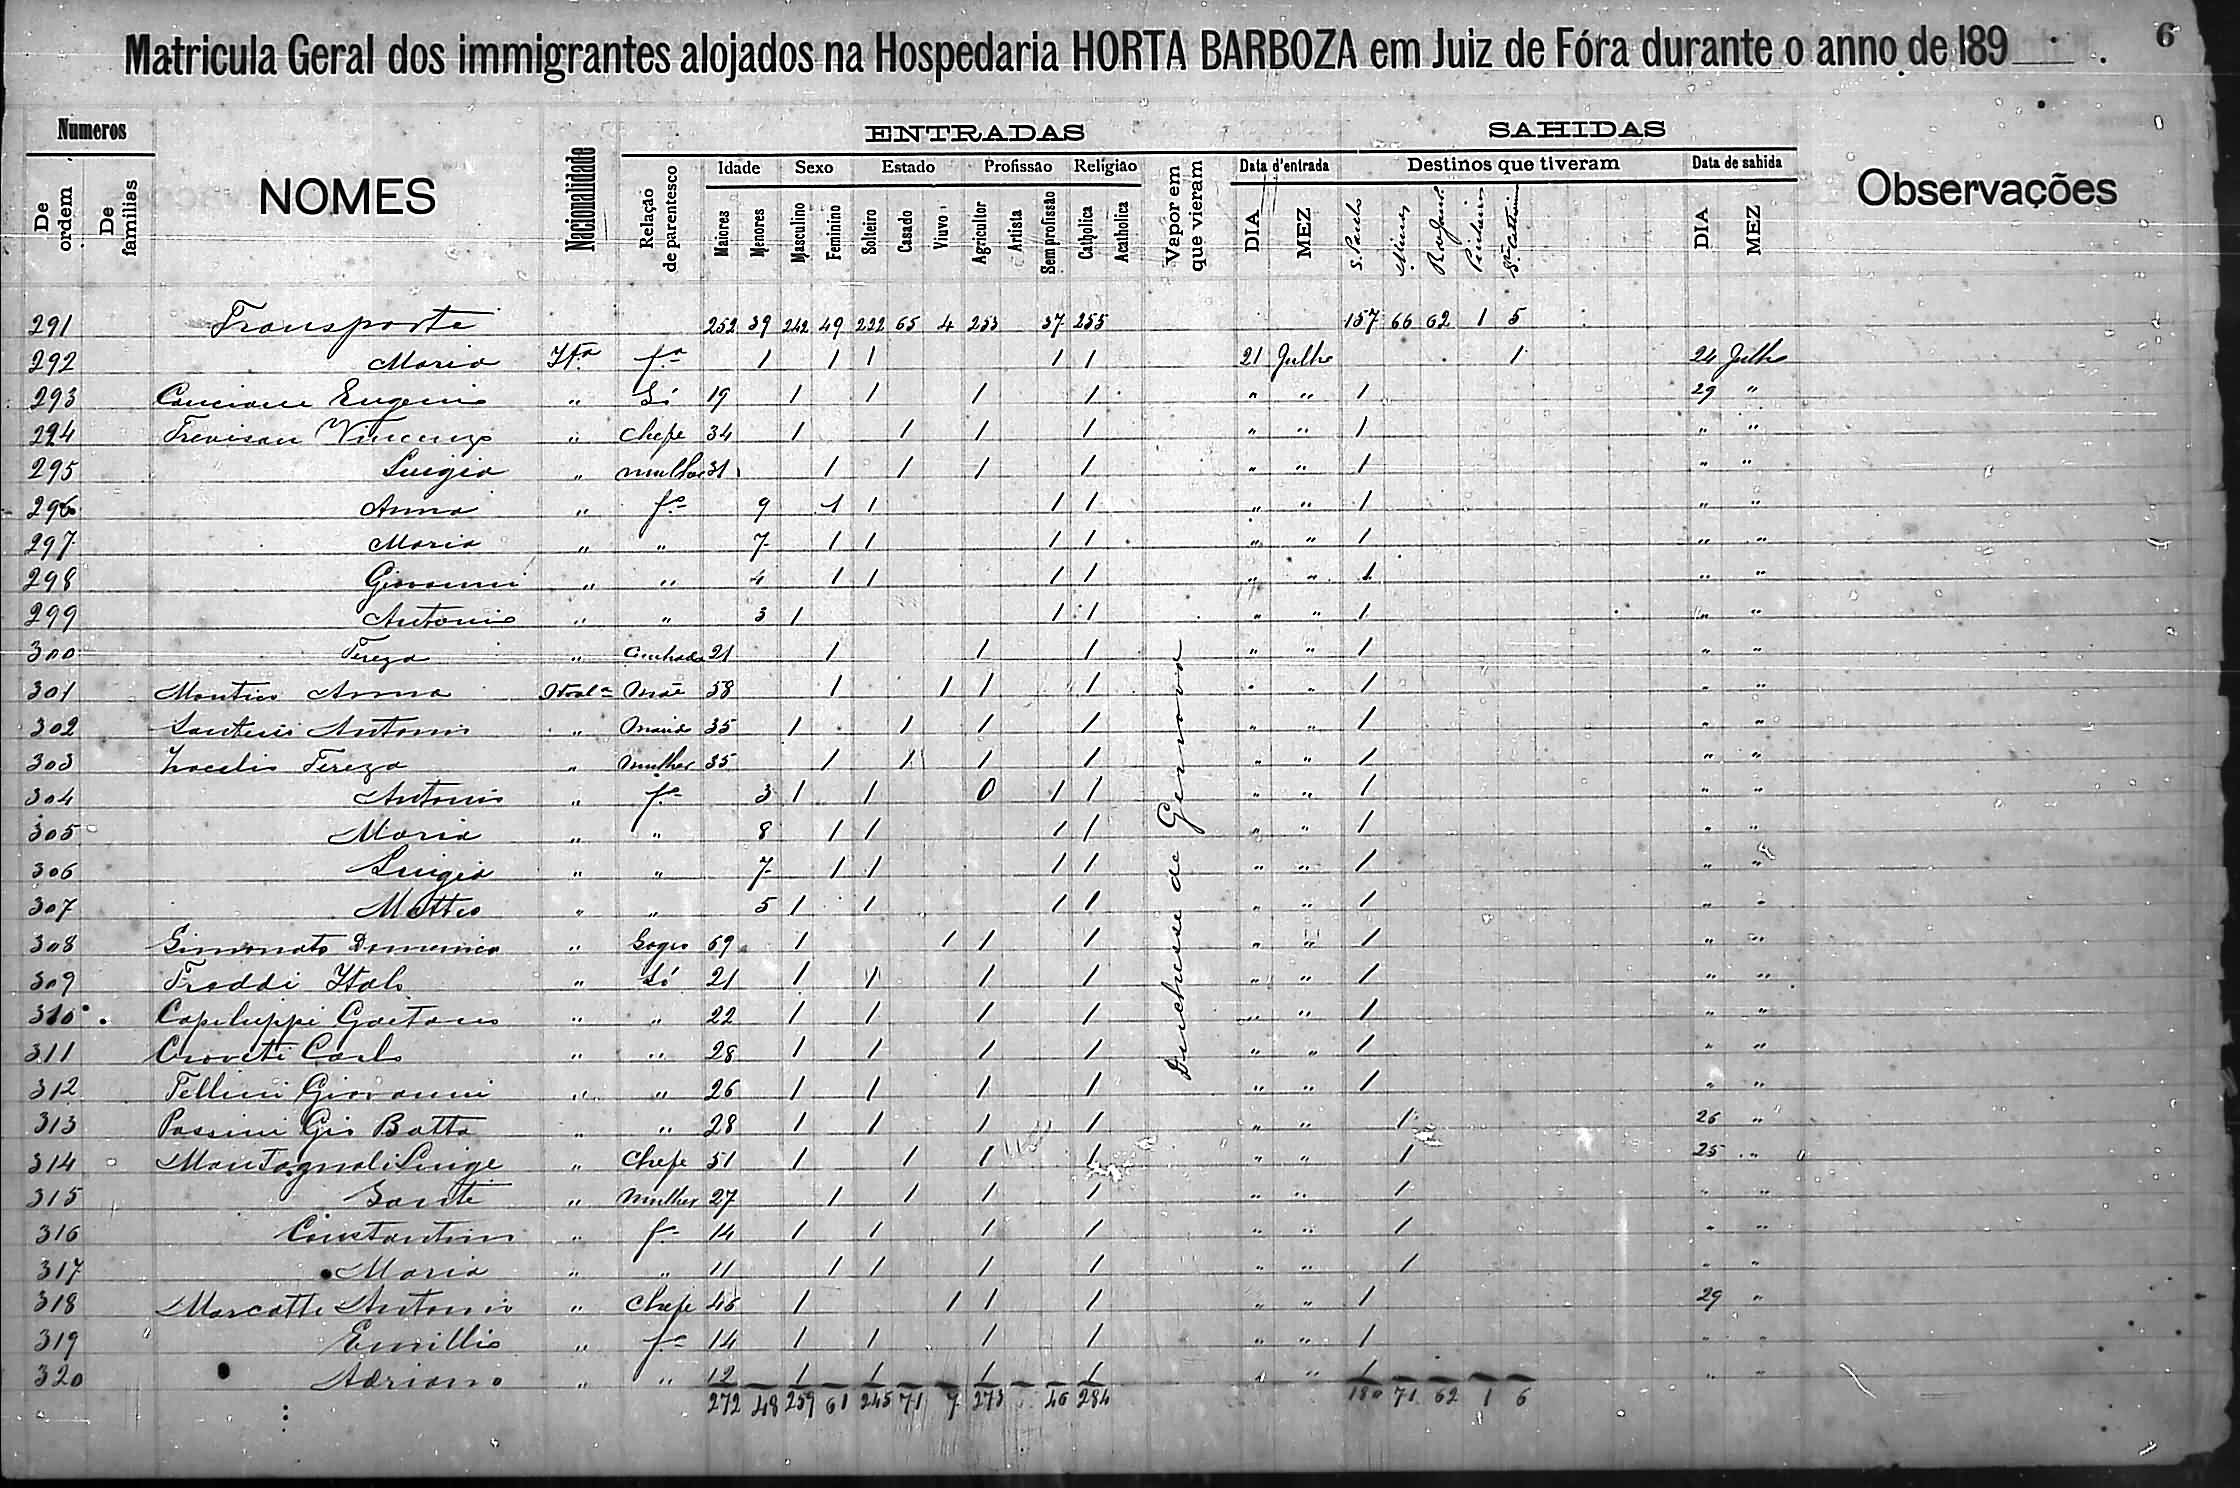 6
Matricula Geral dos immigrantes alojados na Hospedaria HORTA BARBOZA em Juiz de Fóra durante o anno de 189 .
Numeros ENTRADAS SAHIDAS
De ordem De familias NOMES Nacionalidade Relação de parentesco Idade Sexo Estado Profissão Religião Vapor em que vieram Data d'entrada Destinos que tiveram Data de sahida Observações
Maiores Menores Masculino Feminino Solteiro Casado Viuvo Agricultor Artista Sem profissão Catholica Acatholica DIA MEZ S. Paulo Minas DIA MEZ
291 Transporte 252 39 242 49 222 65 4 253 37 255 157 66 62 1 5
292 Maria Ita fa 1 1 1 1 1 21 Julho 1 24 Julho
293 Canciane Eugenio " Só 19 1 1 1 1 " " 1 29 "
294 Trevisan Vincenzo " Chefe 34 1 1 1 1 " " 1 " "
295 Luigia " mulher 31 1 1 1 1 " " 1 " "
296 Anna " fa 9 1 1 1 1 " " 1 " "
297 Maria " " 7 1 1 1 1 " " 1 " "
298 Giovanni " " 4 1 1 1 1 " " 1 " "
299 Antonio " " 3 1 1 1 " " 1 " "
300 Tereza " Cunhada 21 1 1 1 " " 1 " "
301 Anna Ital a Mãe 58 1 1 1 1 " " 1 " "
302 Antonio " Marido 35 1 1 1 1 " " 1 " "
303 Tereza " Mulher 35 1 1 1 1 " " 1 " "
304 Antonio " fo 3 1 1 0 1 1 " " 1 " "
305 Maria " " 8 1 1 1 1 " " 1 " "
306 Luigia " " 7 1 1 1 1 " " 1 " "
307 Matteo " " 5 1 1 1 1 " " 1 " "
308 Simonato Domenico " Sogro 69 1 1 1 1 " " 1 " "
309 Freddi Italo " Só 21 1 1 1 1 " " 1 " "
310 Capiluppi Gaetano " " 22 1 1 1 1 " " 1 " "
311 Croveti Carlo " " 28 1 1 1 1 " " 1 " "
312 Tellini Giovanni " " 26 1 1 1 1 " " 1 " "
313 Passini Gio Batta " " 28 1 1 1 1 " " 1 26 "
314 Montagnoli Luige " Chefe 51 1 1 1 1 " " 1 25 "
315 Sante " Mulher 27 1 1 1 1 " " 1 " "
316 Constantino " fo 14 1 1 1 1 " " 1 " "
317 Maria " " 11 1 1 1 1 " " 1 " "
318 Marcatti Antonio " Chefe 46 1 1 1 1 " " 1 29 "
319 Emillio " fo 14 1 1 1 1 " " 1 " "
320 Adriano " " 12 1 1 1 1 " " 1 " "
272 48 259 61 245 71 7 273 46 284 180 71 62 1 6
Duchesse de Genova